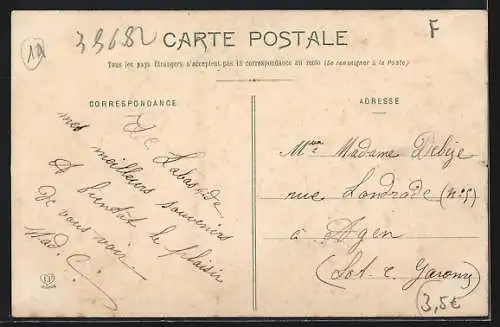 12
39682
F
CARTE POSTALE
Tous les pays étrangers n'acceptent pas la correspondance au recto (Se renseigner à la Poste)
CORRESPONDANCE
De Labastide
mes meilleurs souvenirs
A bientôt le plaisir
De vous voir
Mad. C.
ADRESSE
Madame Debize
rue Londrade (n°5)
à Agen
(Lot. e. Garonne)
3,5€